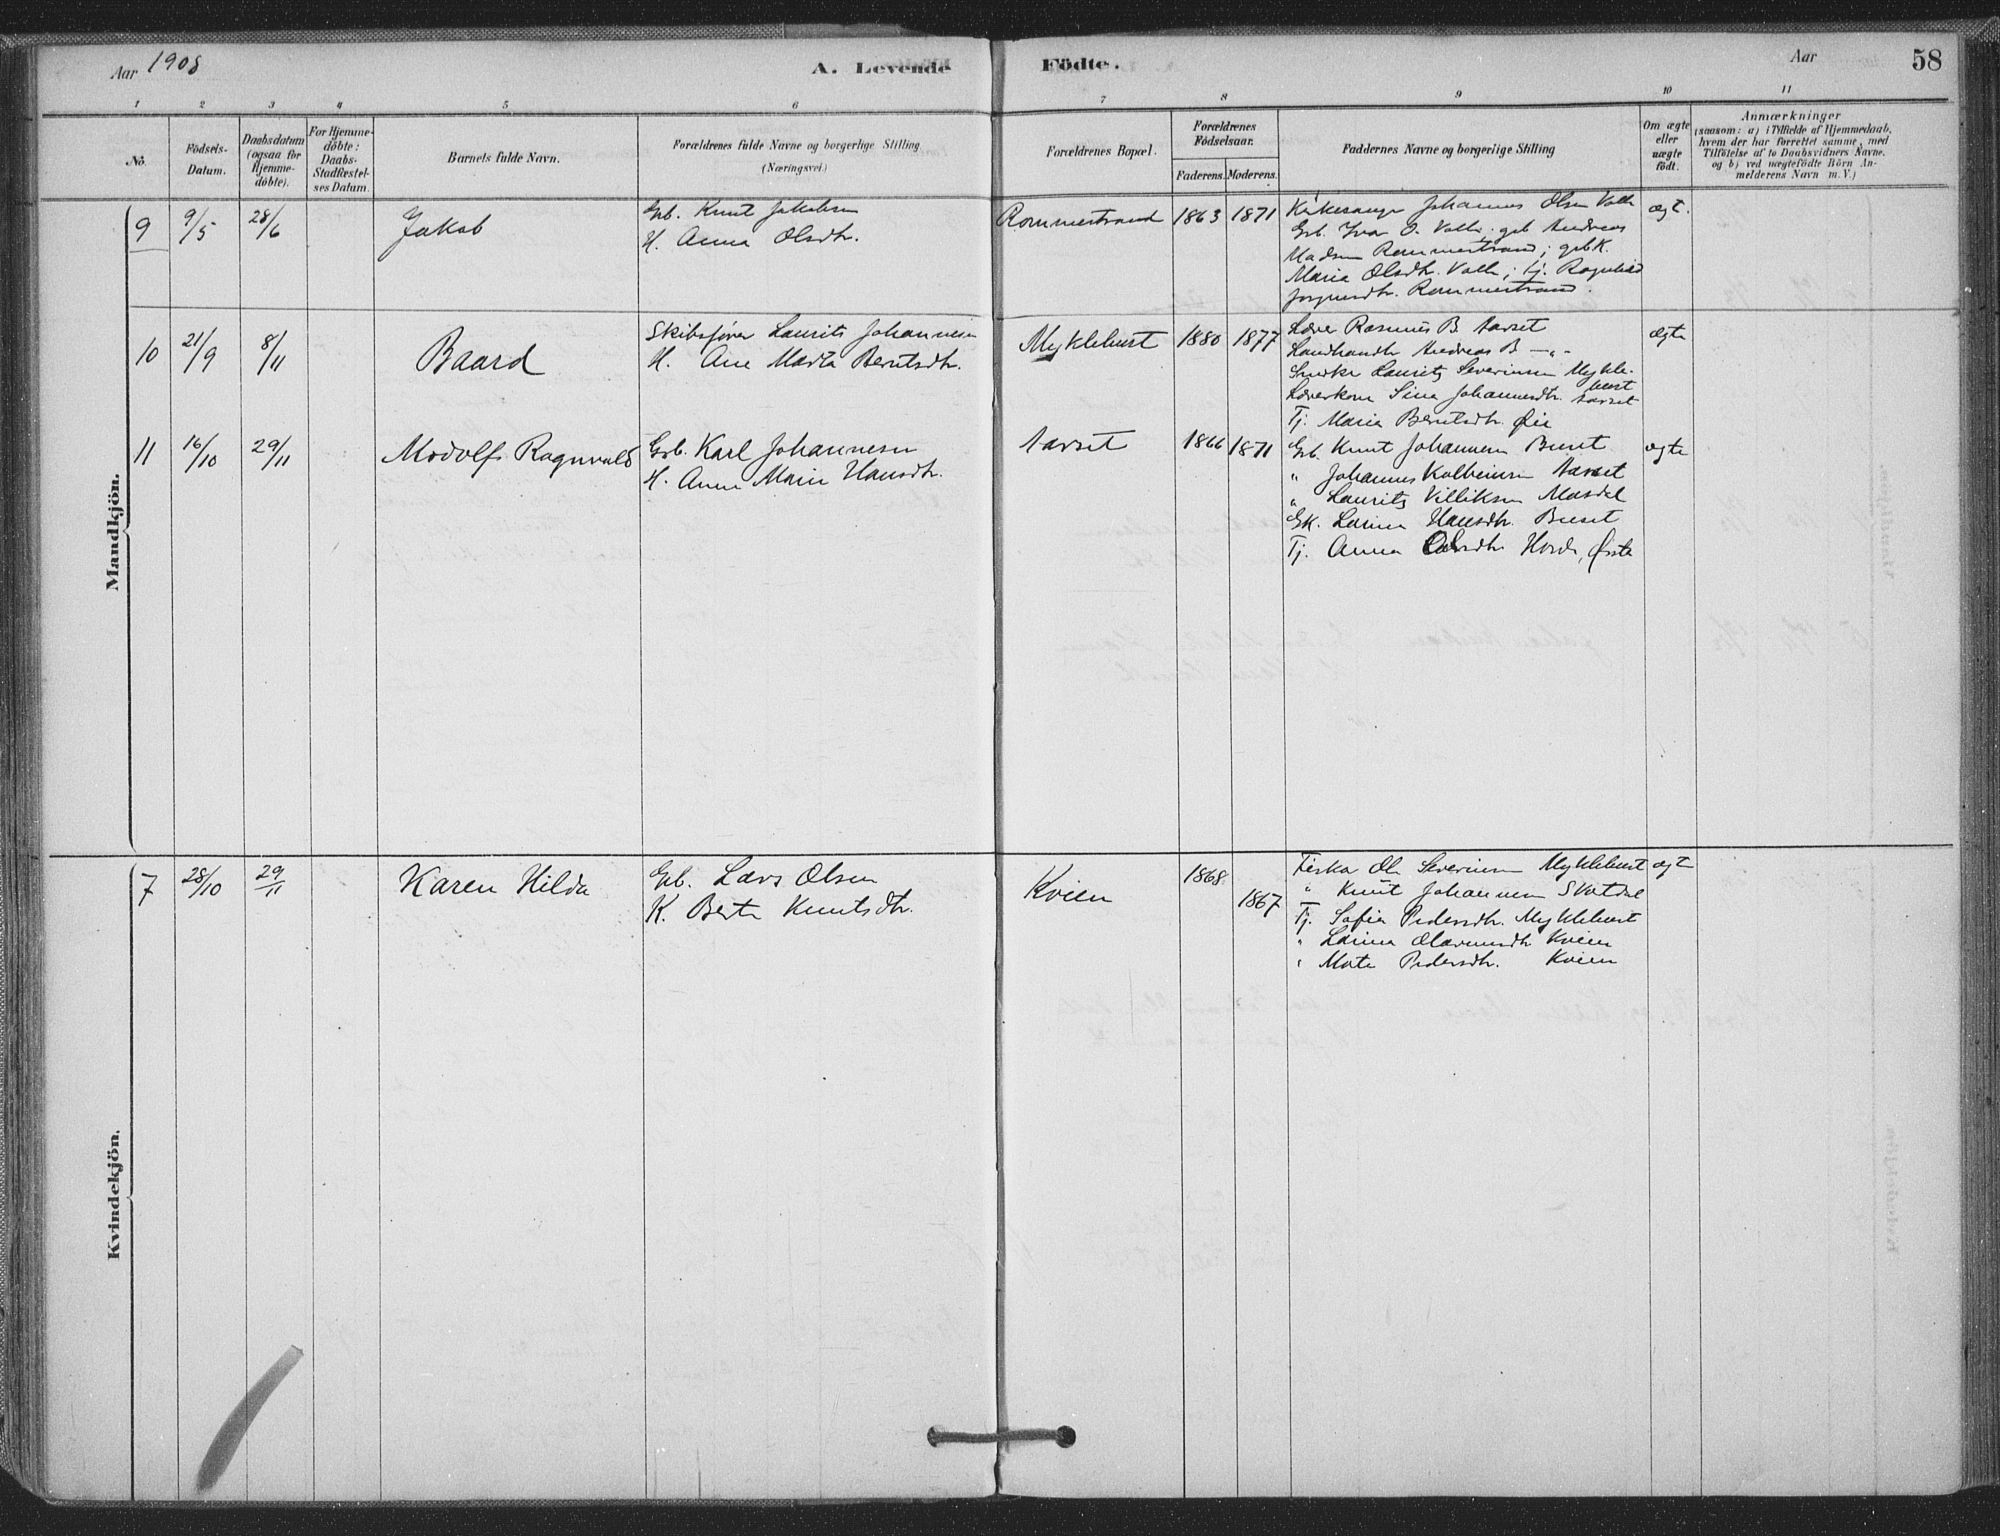 Aar 1908
A. Levende Födte.
Aar
58
1 2 3 4 5 6 7 8 9 10 11
No.
Födsels-Datum.
Daabsdatum (ogsaa for Hjemme-döbte).
For Hjemme-döbte: Daabs-Stadfæstel-ses Datum.
Barnets fulde Navn.
Forældrenes fulde Navne og borgerlige Stilling
(Næringsvei.)
Forældrenes Bopæl.
Forældrenes Födselsaar.
Faderens. Moderens.
Faddernes Navne og borgerlige Stilling
Om ægte eller uægte födt.
Anmærkninger
(saasom: a) i Tilfælde af Hjemmedaab,
hvem der har forrettet samme, med
Tilföielse af to Daabsvidners Navne,
og b) ved uægtefödte Börn An-
melderens Navn m. V.)
Mandkjön.
9 9/5 28/6 Jakob
Grb. Knut Jakobsen
H. Anna Olsdtr.
Rommestrand 1863 1871
Kirkesanger Johannes Olsen Valle
Grb. Ivar O. Valle; gsb Andreas
Madsen Rommestrand; gsbk.
Maria Olsdtr. Valle; tj. Ragnhild
Jørgensdtr. Rommestrand.
ægt.
10 21/9 8/11 Baard
Skibsfører Laurits Johannesen
H. Ane Marta Berntsdtr.
Myklebust 1880 1877
Lærer Rasmus B. Aarset
Landhandlr Andreas B —"-
Snedker Laurits Severinsen Mykle-
bust
Lærerkone Sina Johannesdtr. Aarset
Tj. Maria Berntsdtr. Øie
ægte
11 16/10 29/11 Modolf Ragnvald
Grb. Karl Johannesen
H. Anne Marie Hansdtr.
Aarset 1866 1871
Grb. Knut Johannesen Buset
" Johannes Kolbeinsen Aarset
" Laurits Villiksen Masdal
Gk. Larine Hansdtr. Buset
Tj. Anna Olsdtr. , Ørsta
ægte
Kvindekjön.
7 28/10 29/11 Karen Hilda
Grb. Lars Olsen
K. Berte Knutsdtr.
Kvien 1868. 1867
Fisker Ole Severinsen Myklebust
" Knut Johannesen Skotdal
Tj. Sofia Pedersdtr. Myklebust
" Larina Kvien
" Marte Pedersdtr. Kvien
ægte